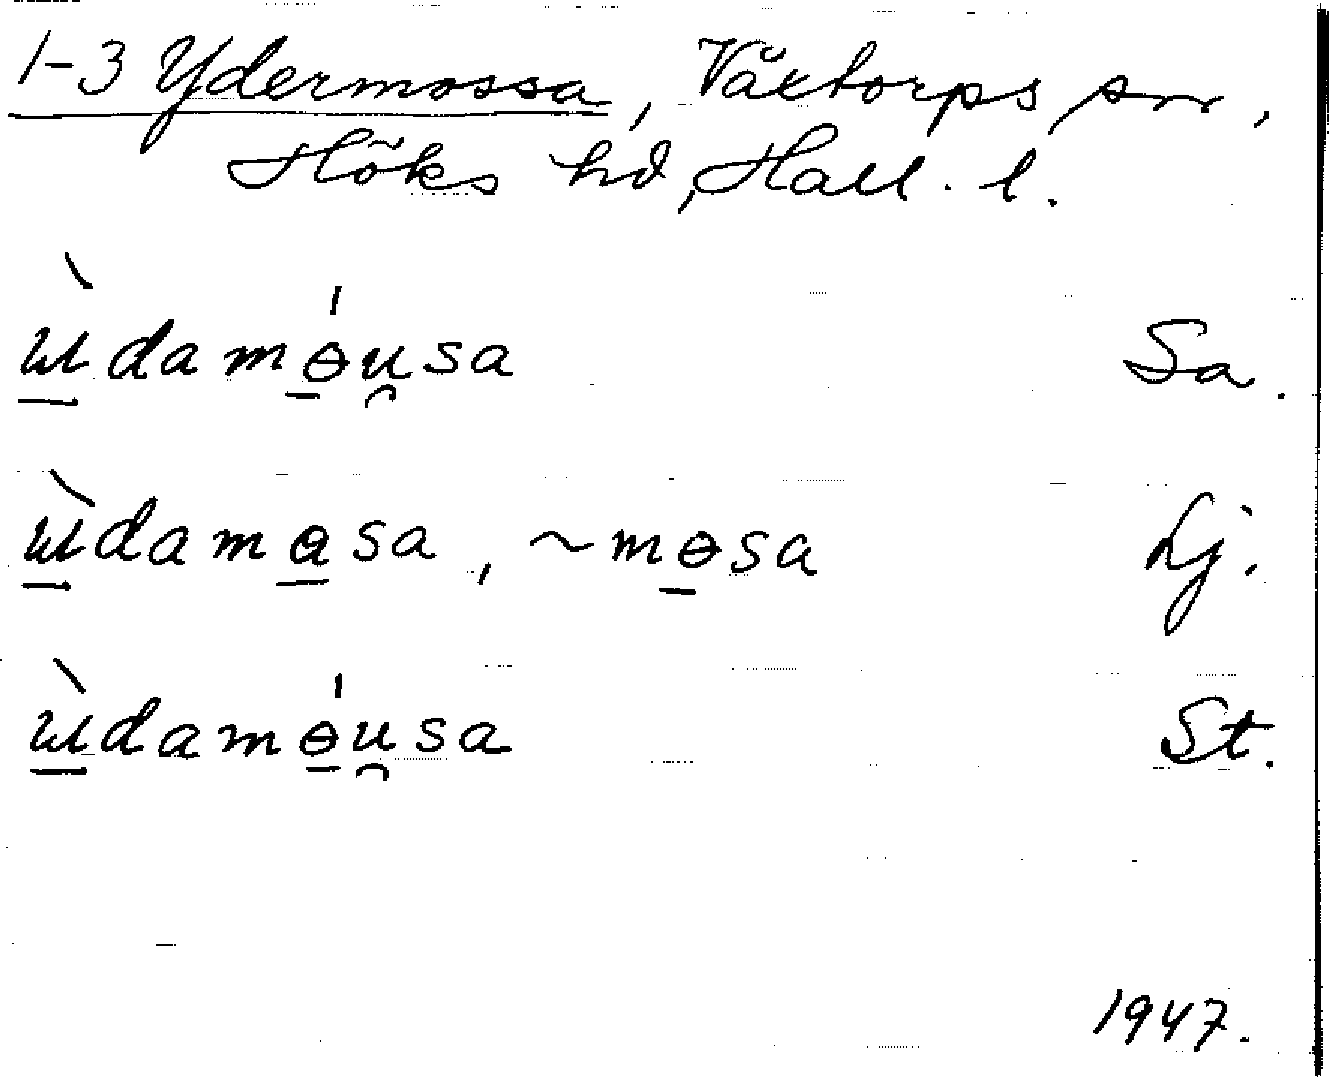 1-3 Ydermossa, Växtorps sn,
Höks hd, Hall. l.
ɯ̱̀damɵ̱́u̯sa Sa.
ɯ̱̀damɵ̱sa, ~mɵ̱sa Lj.
ɯ̱̀damɵ̱́u̯sa St.
1947.